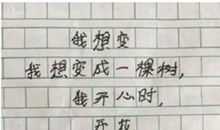 我想变
我想变成一棵树，
我开心时，
开花